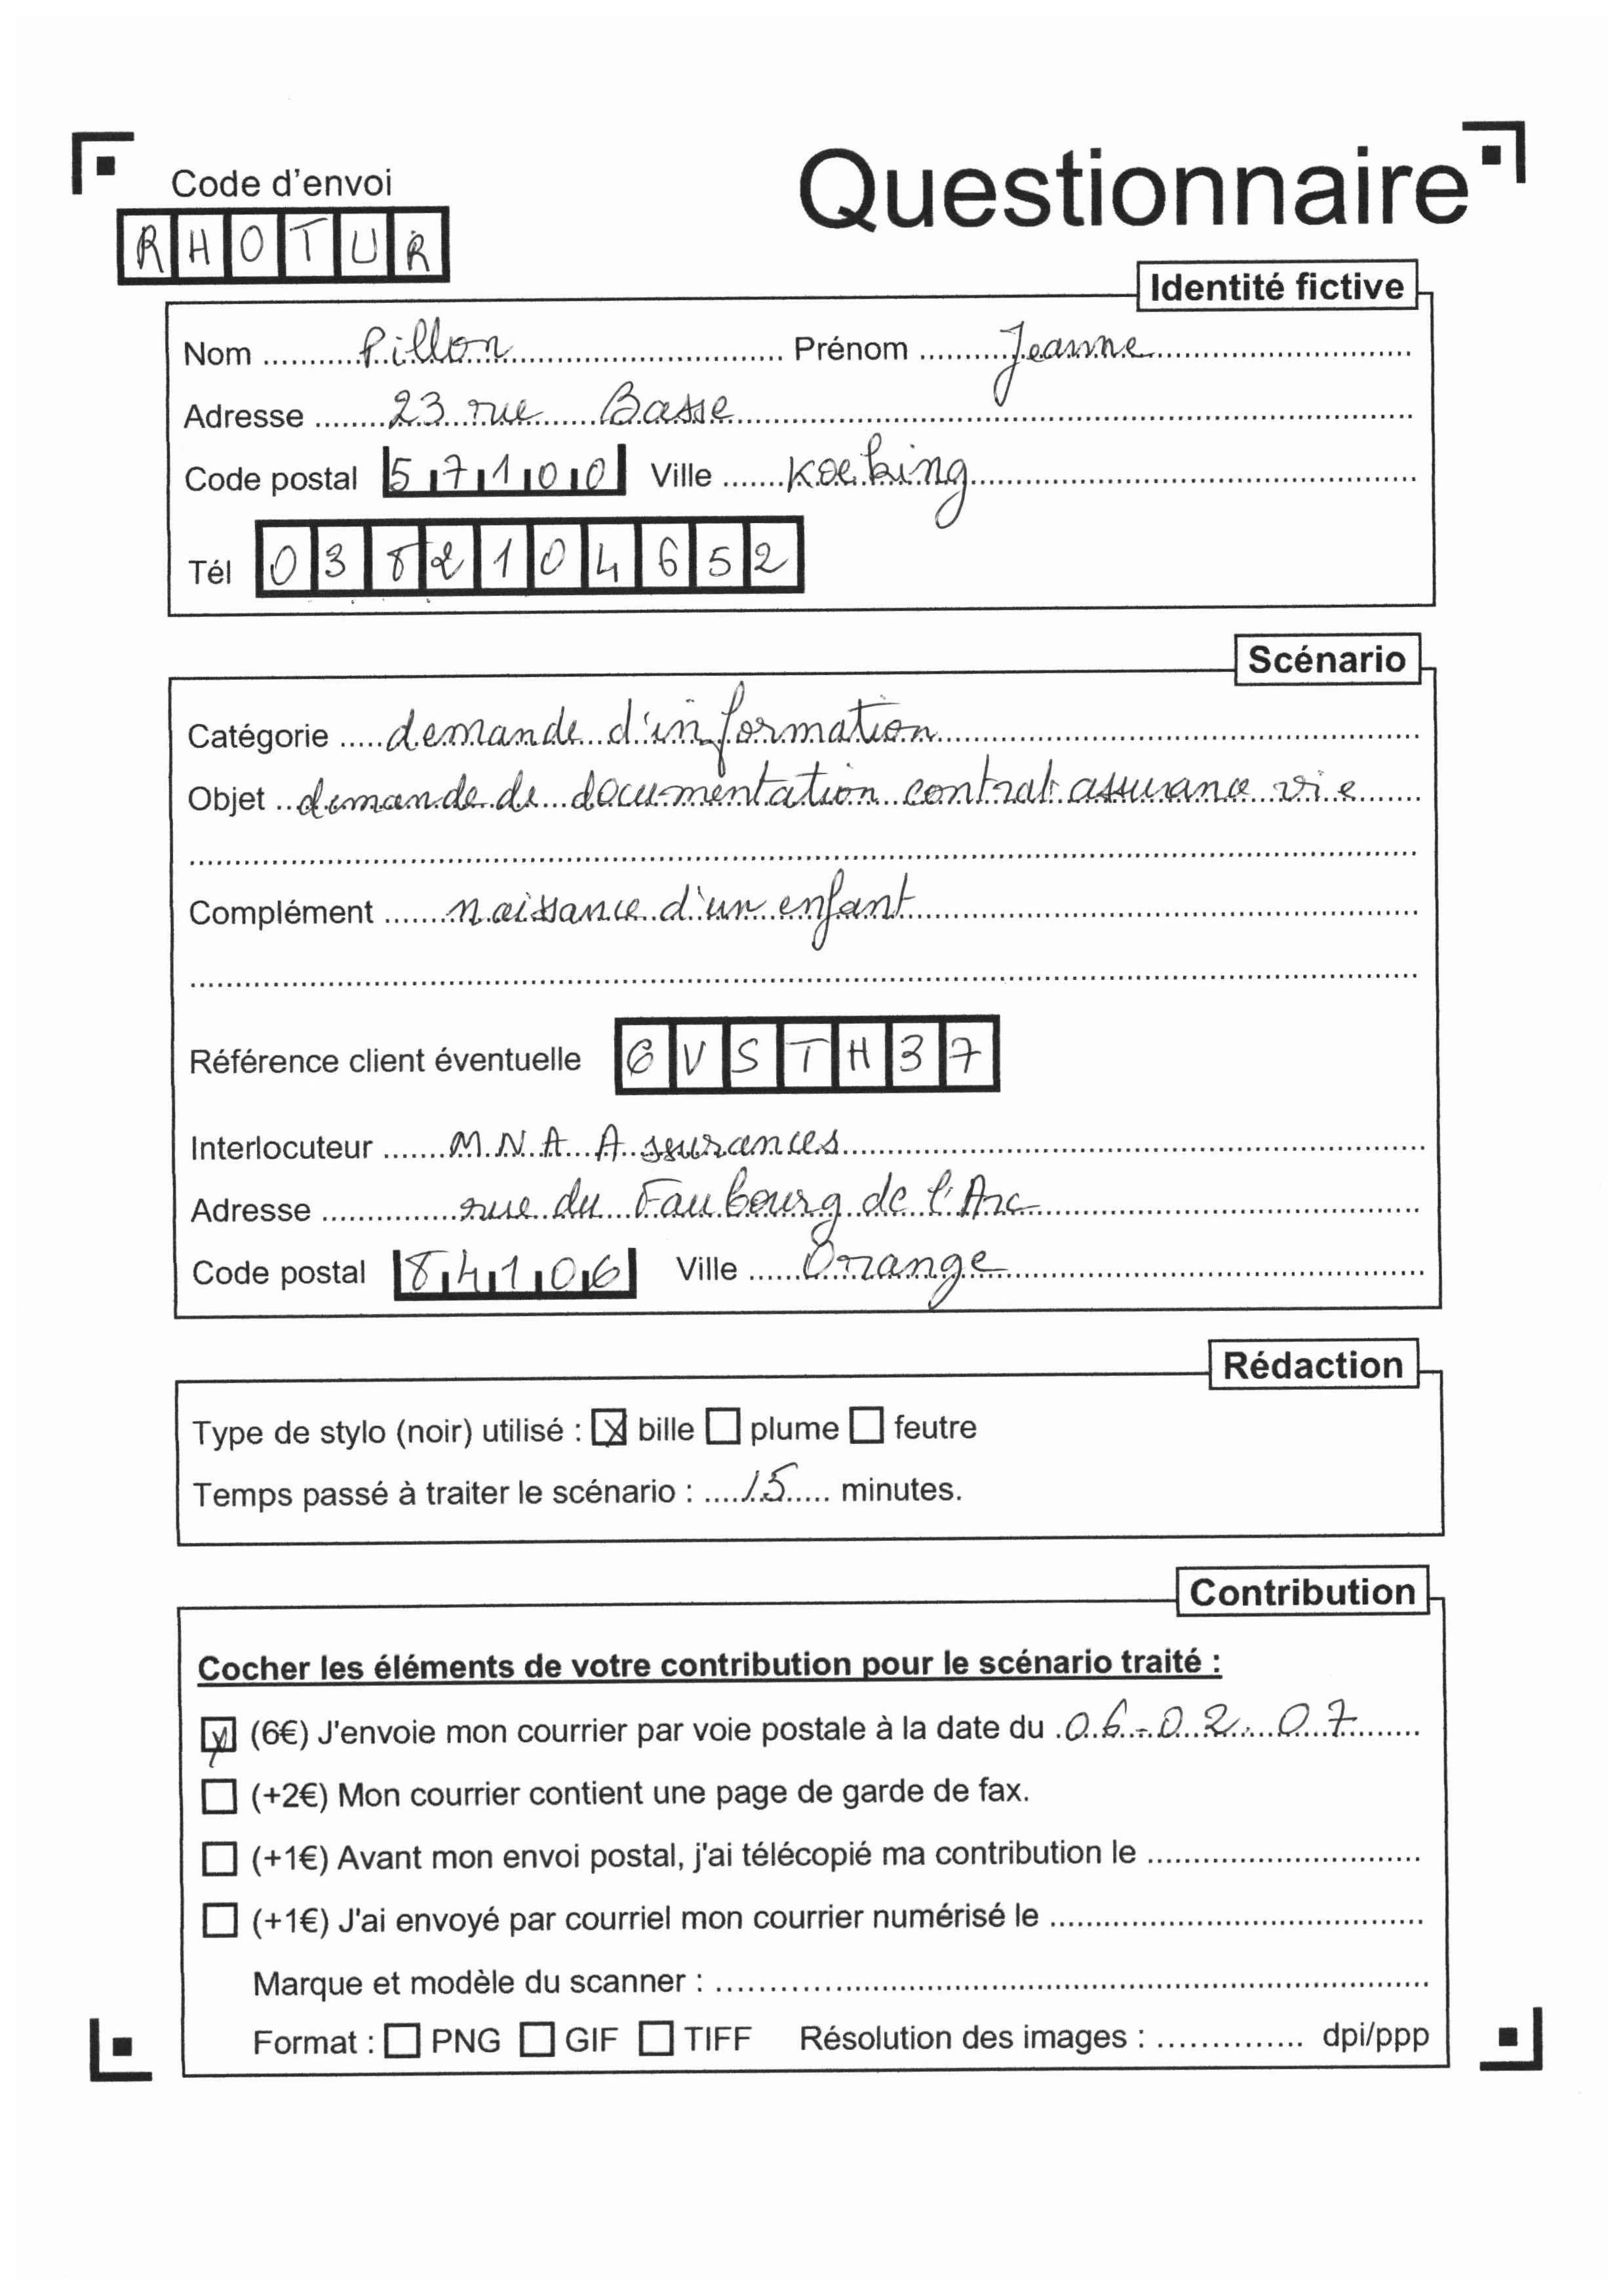 Code d'envoi
Questionnaire
RHOTUR
Identité fictive
Nom ..... Pillon ..... Prénom ..... Jeanne
Adresse ..... 23 rue Basse
Code postal 57100 Ville ..... Koeking
Tél 0382104652
Scénario
Catégorie ..... demande d'information
Objet .. demande de documentation contrat assurance vie
Complément ..... naissance d'un enfant
Référence client éventuelle GVSTH37
Interlocuteur ..... M.N.A. Assurances
Adresse ..... rue du Faubourg de l'Arc
Code postal 84106 Ville ..... Orange
Rédaction
Type de stylo (noir) utilisé : ☒ bille ☐ plume ☐ feutre
Temps passé à traiter le scénario : .... 15 .... minutes.
Contribution
Cocher les éléments de votre contribution pour le scénario traité :
☒ (6€) J'envoie mon courrier par voie postale à la date du . 06-02.07
☐ (+2€) Mon courrier contient une page de garde de fax.
☐ (+1€) Avant mon envoi postal, j'ai télécopié ma contribution le .....
☐ (+1€) J'ai envoyé par courriel mon courrier numérisé le .....
Marque et modèle du scanner : .....
Format : ☐ PNG ☐ GIF ☐ TIFF Résolution des images : ..... dpi/ppp